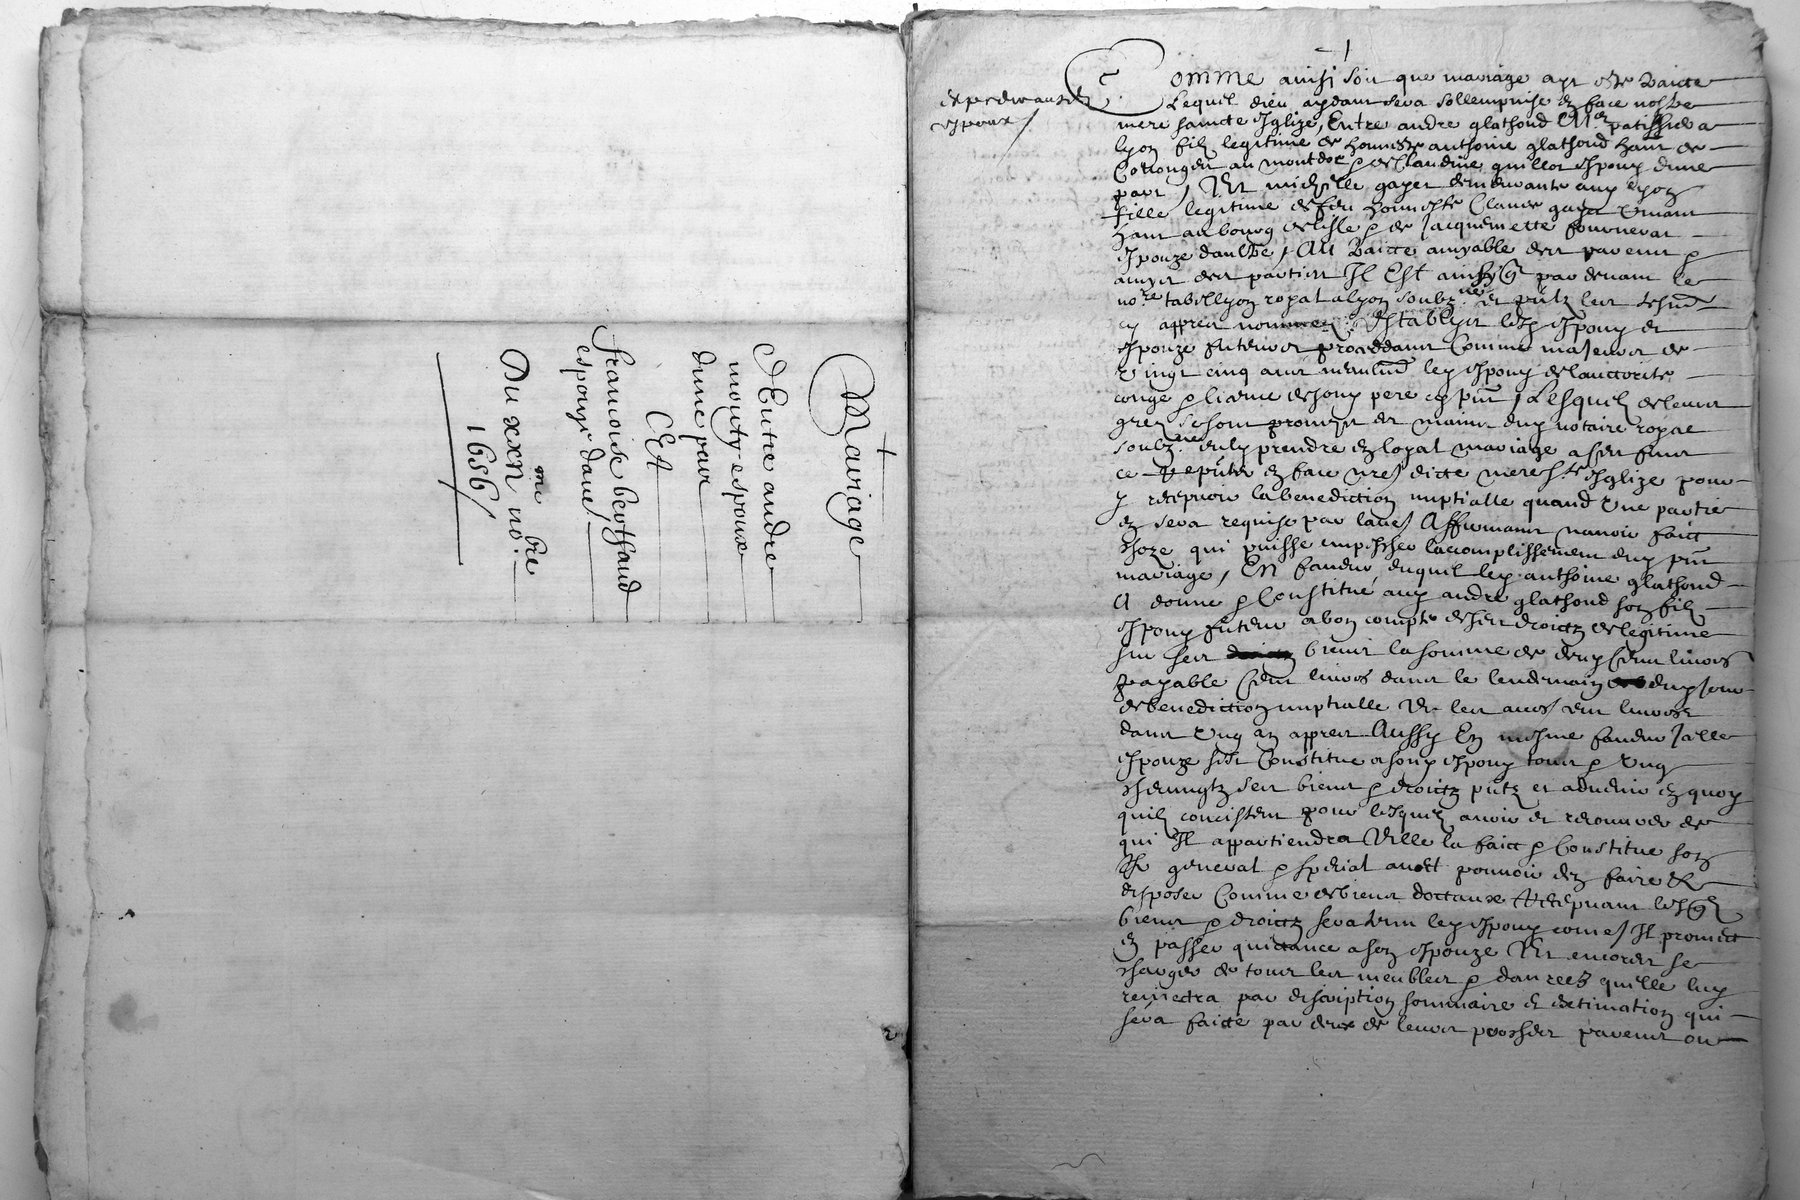 Mariage
d'Entre andre
mouty espoux
dune part
Et
francoise berthaud
espouze daue/
Du xxn me no. bre
1656/
2
expedie ausd
espoux/
Comme ainsi soit que mariage ayt esté traicte
Lequel dieu aydant sera sollempnise en face nostre
mere saincte Esglize, Entre andre glathoud Me patissier a
lyon filz legitime de honneste anthoine glathoud hant de
Collonges au montdor & de Claudine guillot espoux dune
part / Et michelle gayet demeurante aux lyon
fille legitime de feu honneste Claude gayet vivant
hant au bourg de lisle & de Jacquemette fournerat
espouze daultre, Au traicte amyable des parens &
amys des parties Il Est ainsy que par devant le
nore tabellyon royal a lyon soubzne et pntz les tesm
cy appres nommez Establyes lesd espoux et
espouze futeurs proceddant Comme majeurs de
vingt cinq ans mesmes led espoux de lauctorite
conge & licence de sond pere cy pnt / Lesquelz de leurs
grez se sont promys es mains dud notaire royal
soubzne eulx prendre en loyal mariage a ses fins
ce pnter en face nred dicte mere Ste Esglize pour
y recepvoir la benediction nuptialle quand une partie
en sera requise par laue / Affirmant navoir faict
choze qui puisse empescher lacomplissement dud pnt
mariage, En faveur duquel led anthoine glathoud
A donne & Constitue aud andre glathoud son filz
espoux futeur a bon compte de ses droictz de legitime
sur ses biens la somme de deux Cent livres
payable Cent livres dans le lendemain dud jour
de benediction nuptialle Et les aues cent livres
dans ung an appres Aussy En mesme faveur lad
espouze sest Constitue a sond espoux tous & ung
chacungtz ses biens & droictz pntz et advenir en quoy
quilz concistent pour lesquelz avoir et recouvrer de
qui Il appartiendra Elle la faict & Constitue son
Pr general & special avect pouvoir den faire &
disposer Comme de biens doctaux Recepvant lesqz
biens & droictz sera tenu led espoux come Il promect
en passer quictance a son espouze Et encores se
charger de tous les meubles & danrees quelle luy
remectra par discription sommaire et extimation qui
sera faicte par deux de leurs prosches parens ou